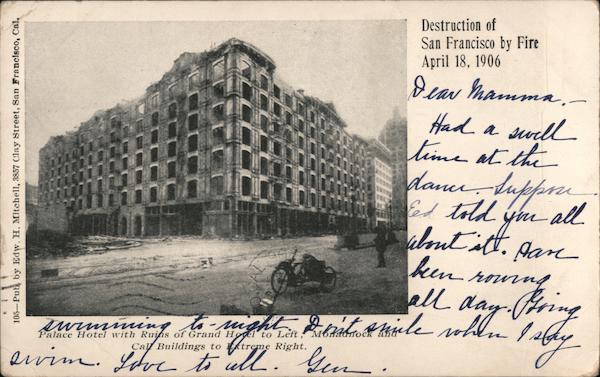 105—Pub. by Edw. H. Mitchell, 3857 Clay Street, San Francisco, Cal.
Destruction of
San Francisco by Fire
April 18, 1906
Dear Mamma.—
Had a swell
time at the
dance. Suppose
Ed told you all
about it. Have
been rowing
all day. Going
swimming to-night. Don't smile when I say
swim. Love to all. Gen.
Palace Hotel with Ruins of Grand Hotel to Left, Monadnock and
Call Buildings to Extreme Right.